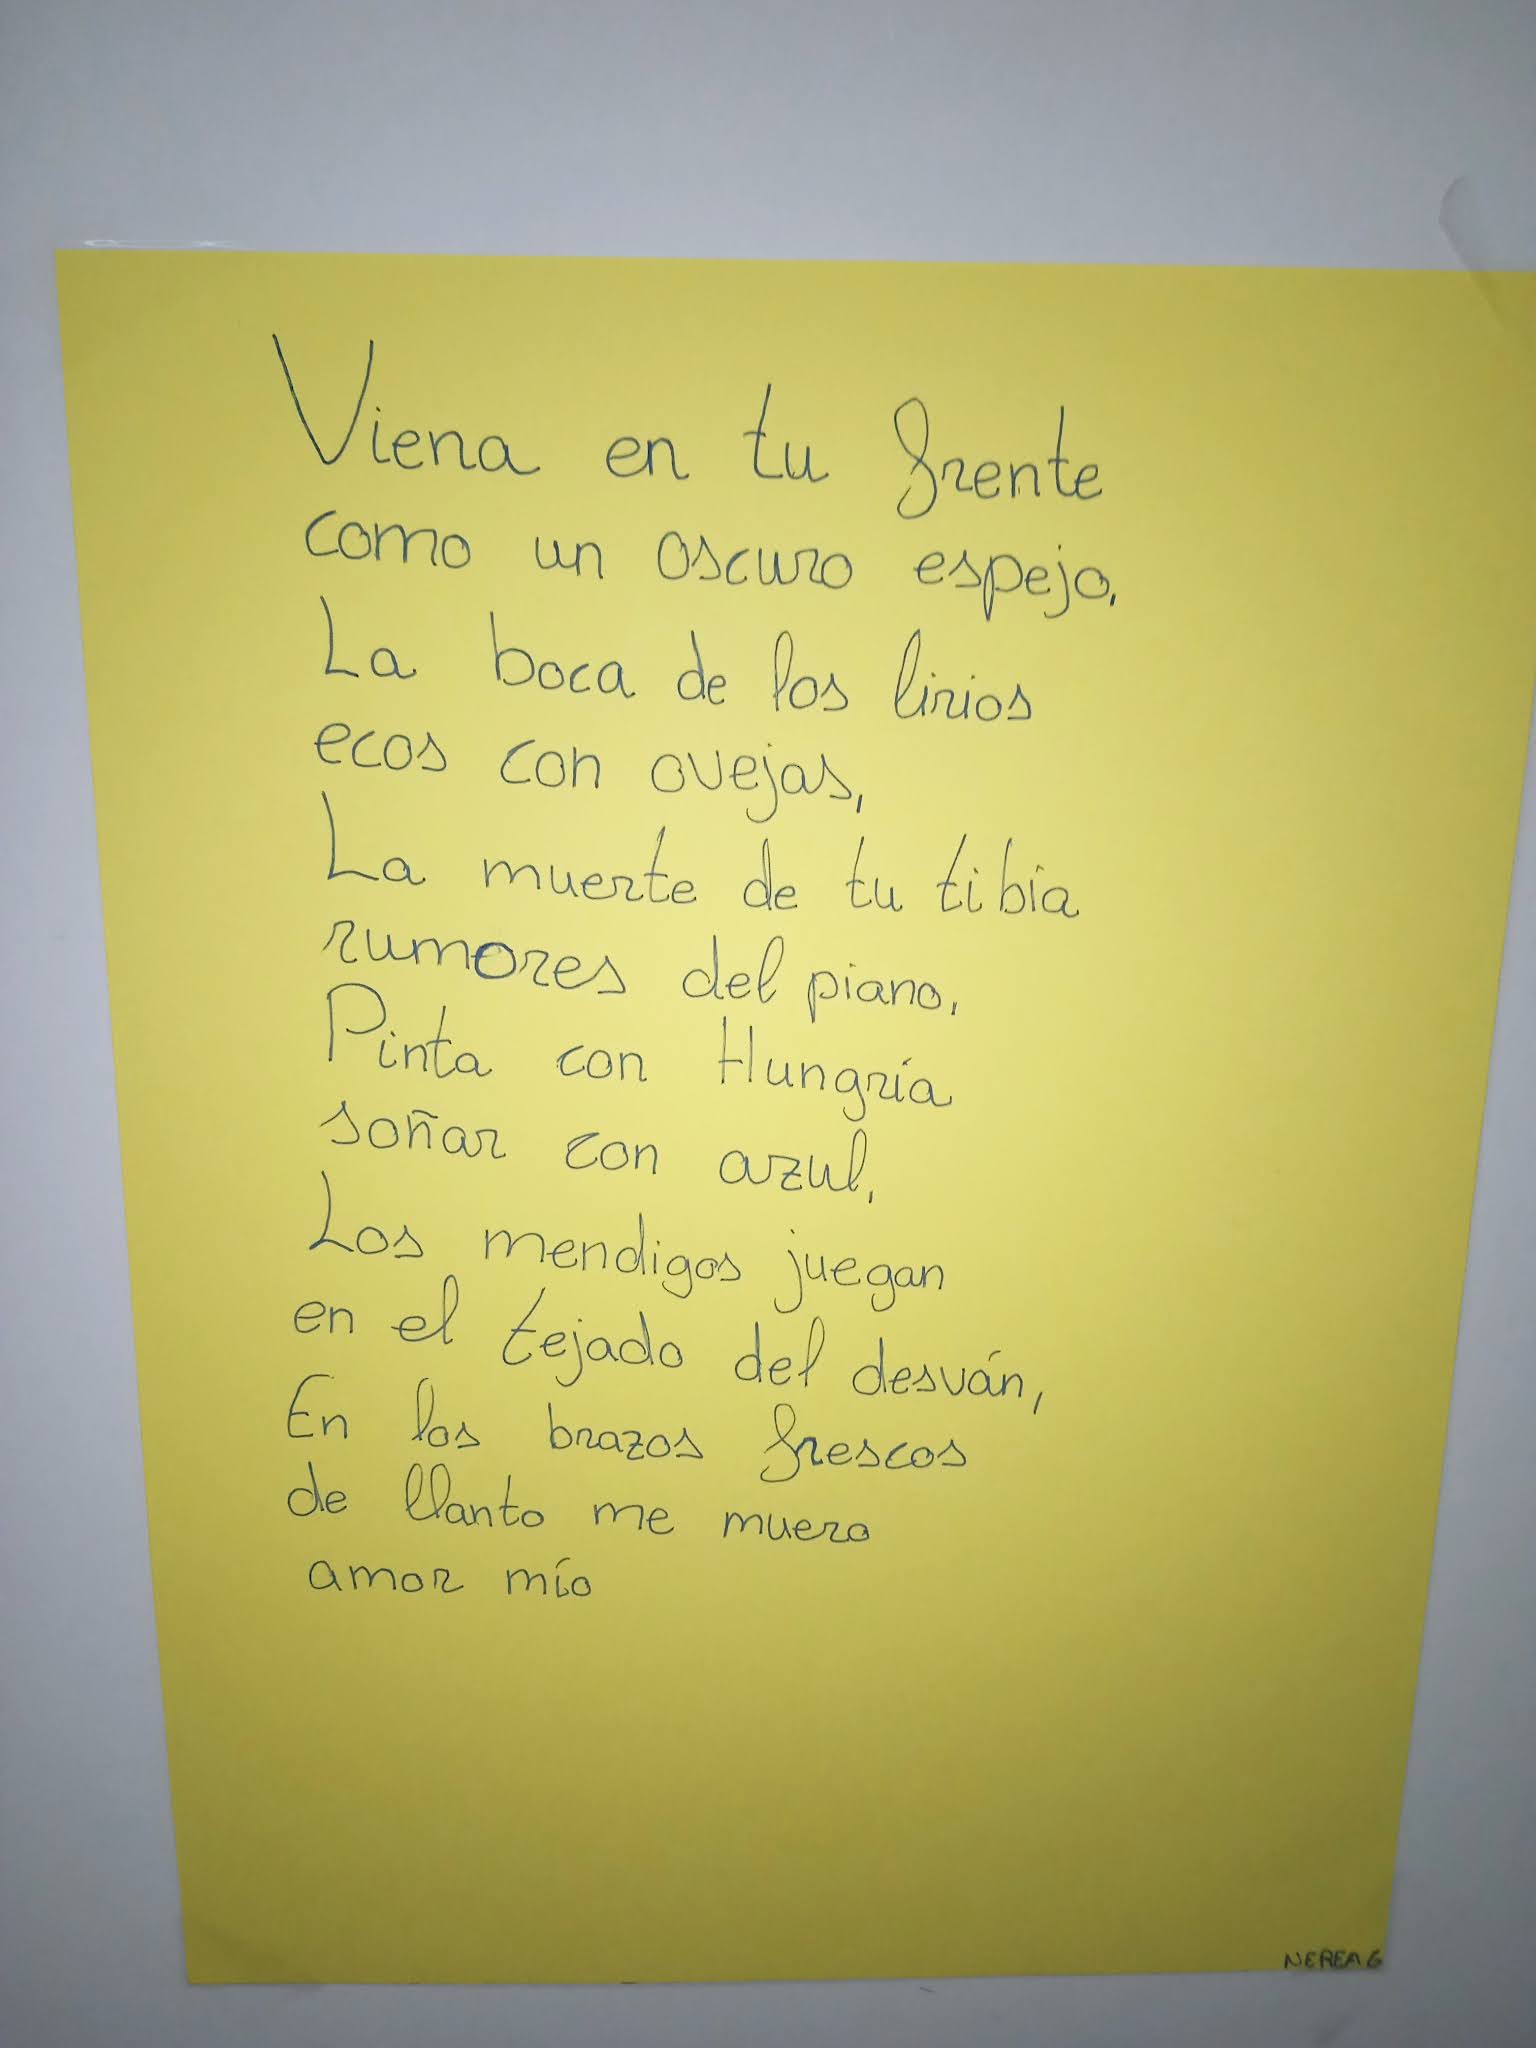 Viena en tu frente
como un oscuro espejo,
La boca de los lirios
ecos con ovejas,
La muerte de tu tibia
rumores del piano,
Pinta con Hungría
soñar con azul,
Los mendigos juegan
en el tejado del desván,
En los brazos frescos
de llanto me muero
amor mío
NEREA G